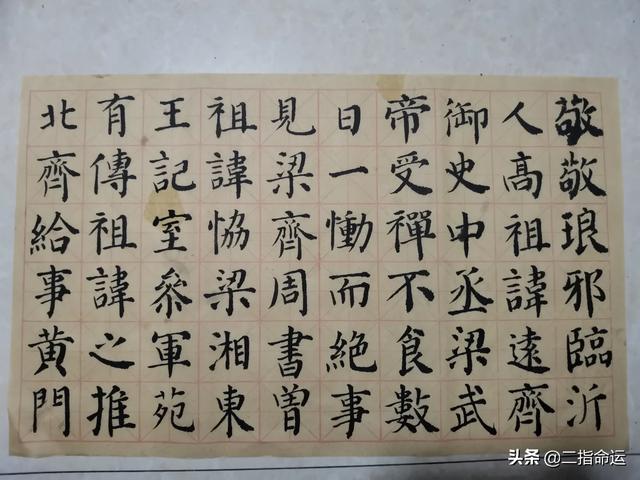 敬敬琅邪臨沂
人高祖諱遠齊
御史中丞梁武
帝受禪不食數
日一慟而絶事
見梁齊周書曽
祖諱恊梁湘東
王記室叅軍苑
有傳祖諱之推
北齊給事黄門
头条 @二指命运